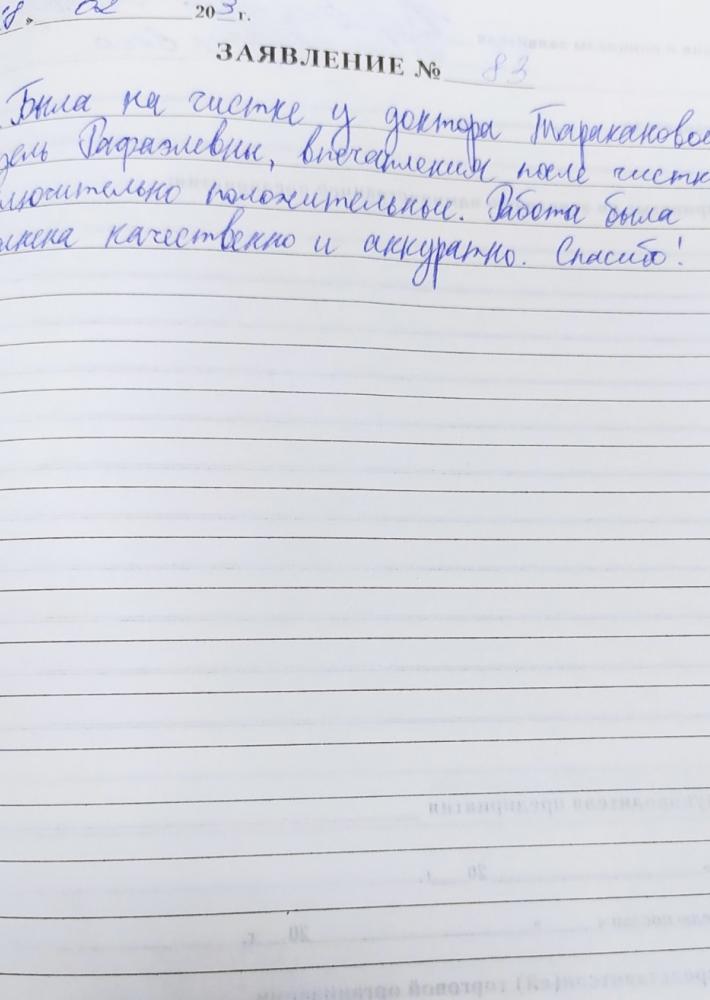 8 » 02 203 г.
ЗАЯВЛЕНИЕ № 83
Была на чистке у доктора Таракановой
дель Рафаэлевны, впечатления после чистк
лючительно положительные. Работа была
лнена качественно и аккуратно. Спасибо!
20 г.
20 г.